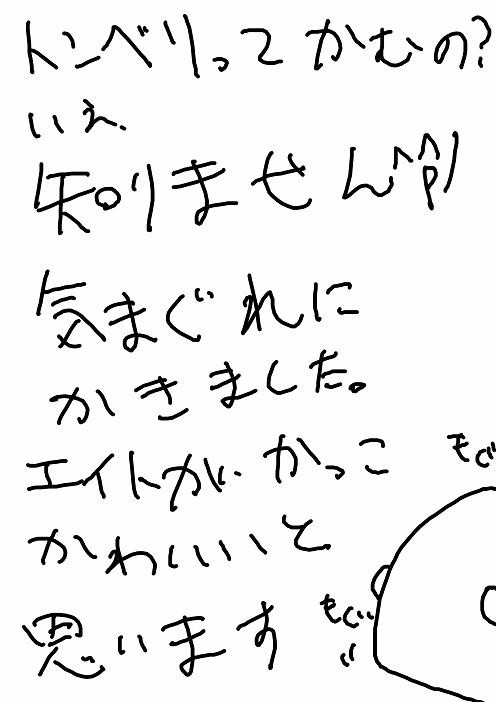 トンベリってかむの?
いえ、
知りません^^
気まぐれに
かきました。
エイトが、かっこ
かわいいと
思います
もぐ
もぐ